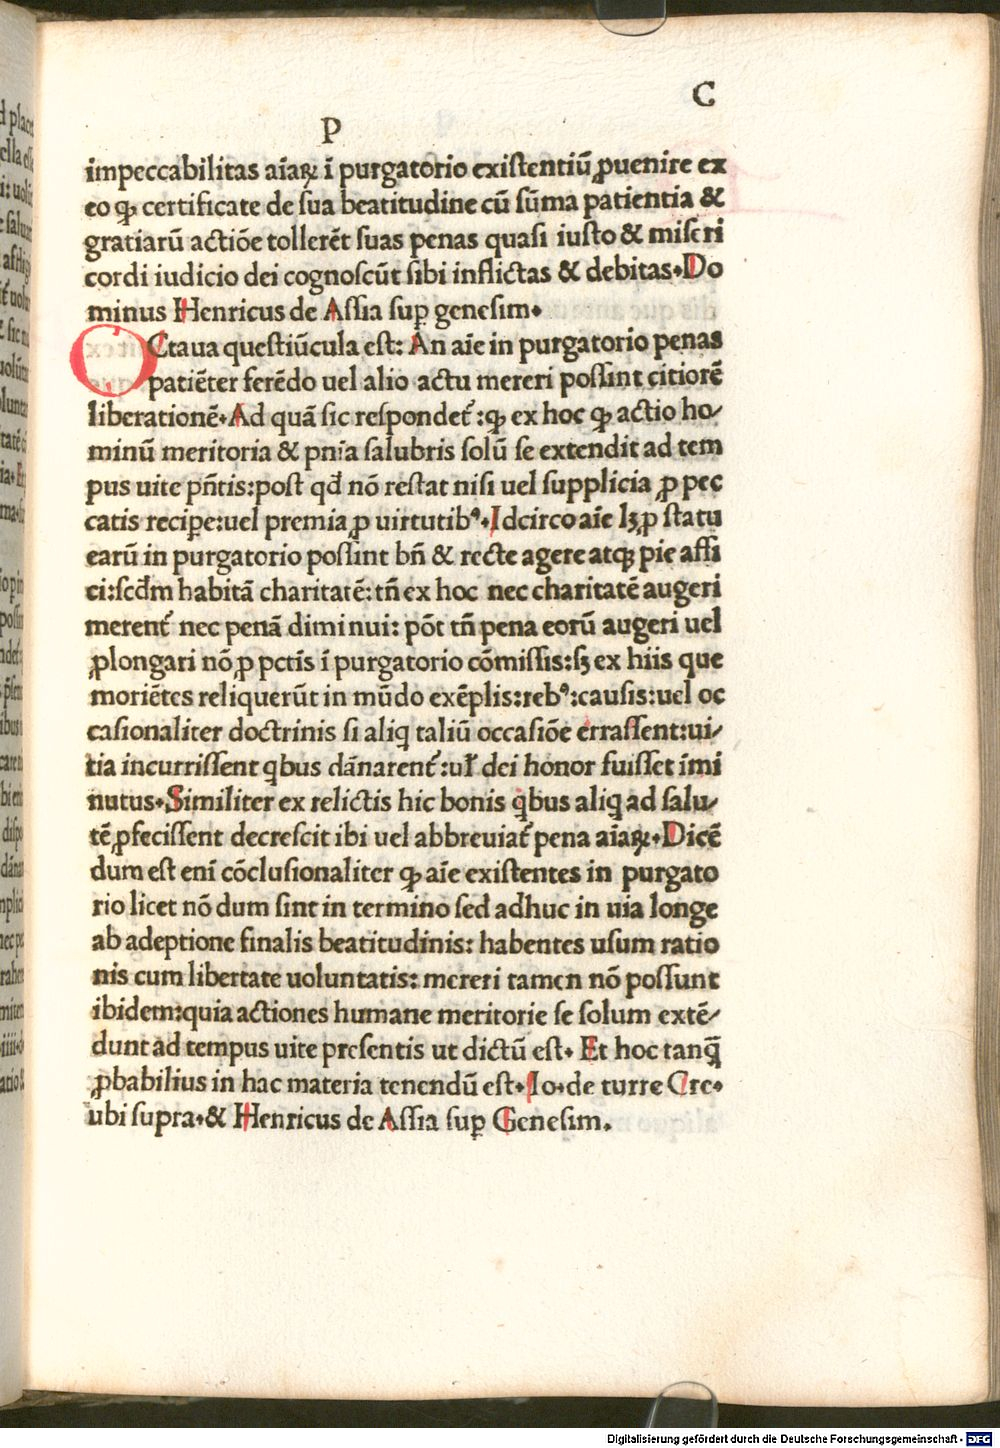 C
P
impeccabilitas aīaꝝ ī purgatorio existentiū ꝓuenire ex
eo ꝙ certificate de sua beatitudine cū sūma patientia &
gratiarū actiōe tollerēt suas penas quasi iusto & miseri
cordi iudicio dei cognoscūt sibi inflictas & debitas. Do
minus Henricus de Assia suꝑ genesim.
OCtaua questiūcula est: An aīe in purgatorio penas
patiēter ferēdo uel alio actu mereri possint citiorē
liberationē. Ad quā sic respondet᷑: ꝙ ex hoc ꝙ actio ho⸗
minū meritoria & pnīa salubris solū se extendit ad tem
pus uite pn̄tis: post qd̄ nō restat nisi uel supplicia ꝓ pec
catis recipe: uel premia ꝓ uirtutibꝰ. Idcirco aīe lꝫ ꝓ statu
earū in purgatorio possint bn̄ & recte agere atqꝫ pie affi
ci: scd̄m habitā charitatē: tn̄ ex hoc nec charitatē augeri
merent᷑ nec penā diminui: pōt tn̄ pena eorū augeri uel
ꝓlongari nō ꝓ pctīs ī purgatorio cōmissis: sꝫ ex hiis que
moriētes reliquerūt in mūdo exēplis: rebꝰ: causis: uel oc
casionaliter doctrinis si aliq̄ taliū occasiōe errassent: ui⸗
tia incurrissent q̇bus dānarent᷑: ul̄ dei honor fuisset īmi
nutus. Similiter ex relictis hic bonis q̇bus aliq̇ ad salu⸗
tē ꝓfecissent decrescit ibi uel abbreuiat᷑ pena aīaꝝ. Dicē
dum est enī cōclusionaliter ꝙ aīe existentes in purgato
rio licet nō dum sint in termino sed adhuc in uia longe
ab adeptione finalis beatitudinis: habentes usum ratio
nis cum libertate uoluntatis: mereri tamen nō possunt
ibidem: quia actiones humane meritorie se solum extē⸗
dunt ad tempus uite presentis ut dictū est. Et hoc tanq̄
ꝓbabilius in hac materia tenendū est. Io. de turre Cre.
ubi supra. & Henricus de Assia suꝑ Genesim.
Digitalisierung gefördert durch die Deutsche Forschungsgemeinschaft - DFG